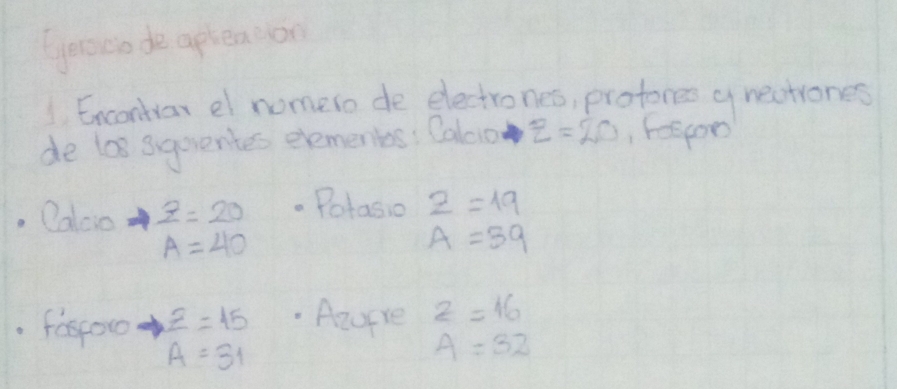 Ejercicio de aplicación
1. Encontrar el numero de electrones, protones y neutrones
de los siguientes elementos: Calcio → Z = 20, Fósforo
• Calcio → Z = 20 • Potasio Z = 19
A = 40 A = 39
• fósforo → Z = 15 • Azufre Z = 16
A = 31 A = 32